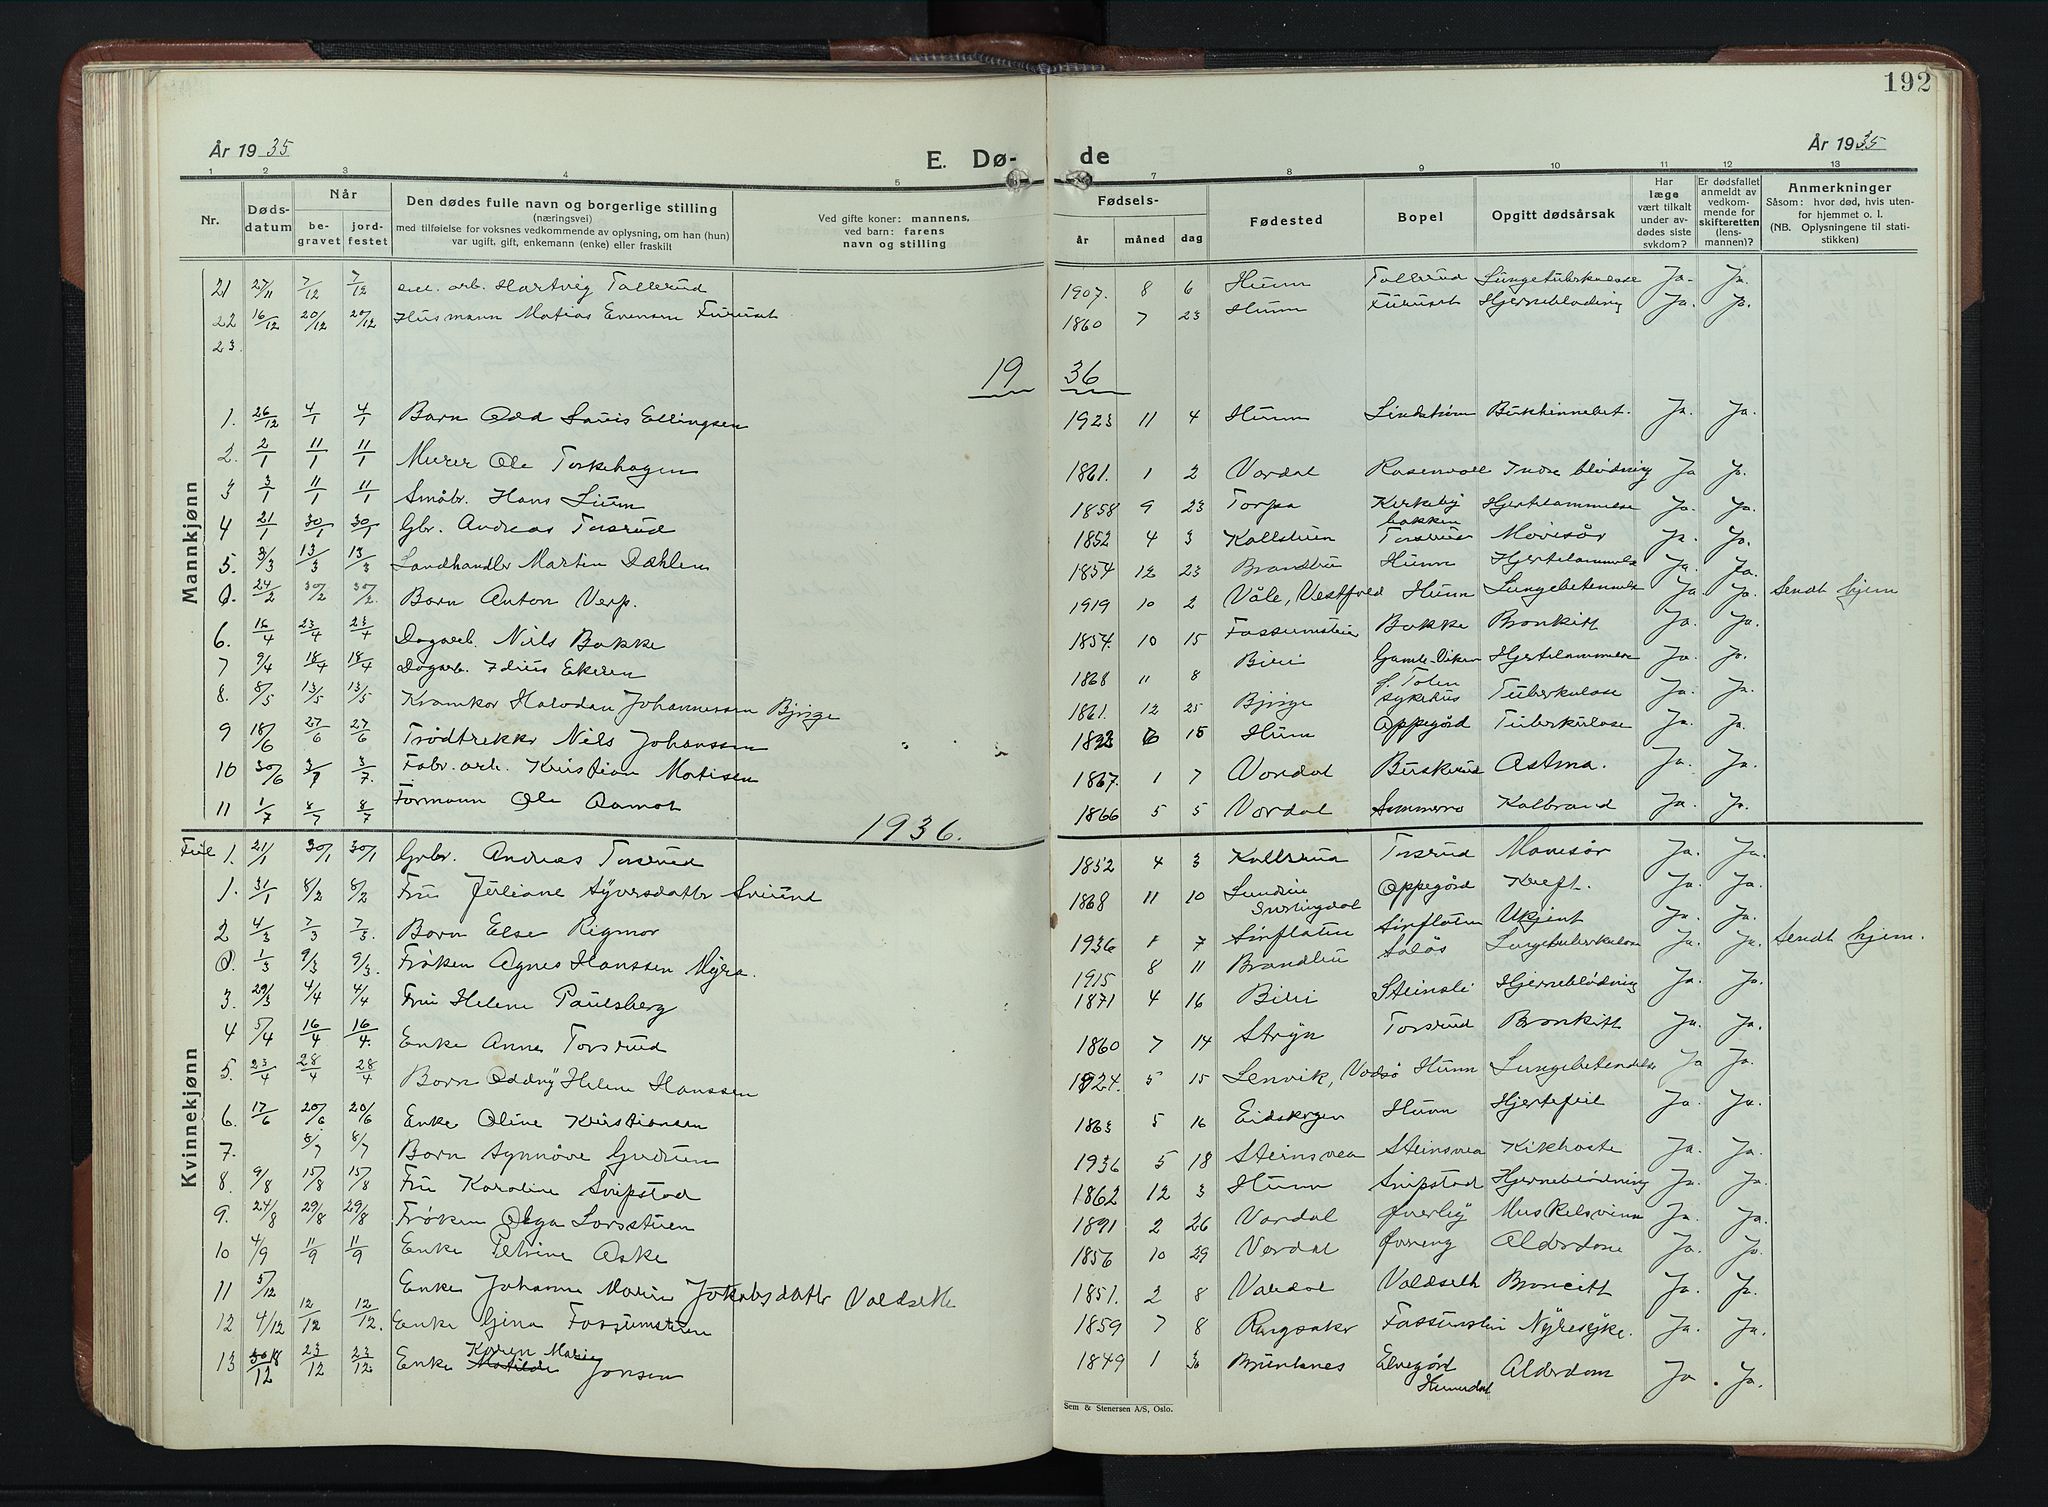 192
År 1935
E. Dø-
de
År 1935
1 2 3 4 5 7 8 9 10 11 12 13
Nr.
Døds-
datum
Når
be-
gravet
jord-
festet
Den dødes fulle navn og borgerlige stilling
(næringsvei)
med tilføielse for voksnes vedkommende av oplysning, om han (hun)
var ugift, gift, enkemann (enke) eller fraskilt
Ved gifte koner: mannens,
ved barn: farens
navn og stilling
Fødsels-
år måned dag
Fødested
Bopel
Opgitt dødsårsak
Har
læge
vært tilkalt
under av-
dødes siste
sykdom?
Er dødsfallet
anmeldt av
vedkom-
mende for
skifteretten
(lens-
mannen)?
Anmerkninger
Såsom: hvor død, hvis uten-
for hjemmet o. l.
(NB. Oplysningene til stati-
stikken)
Mannkjønn
21 27/11 7/12 7/12 arb. Hartvig Tollerud 1907. 8 6 Hunn Tollerud Lungetuberkulose Ja. Ja.
22 16/12 20/12 20/12 Husmann Matias Evensen Furuset 1860 7 23 Hunn Furuset Hjerneblødning Ja. Ja.
23.
19 36
1. 26/12 4/1 4/1 Barn Odd Louis Ellingsen 1923 11 4 Hunn Bukhinnebet. Ja. Ja.
2. 2/1 11/1 11/1 Murer Ole Torkehagen 1861. 1 2 Vardal Rosenvoll Indre blødning Ja Ja.
3 3/1 11/1 11/1 Småbr. Hans Lium 1858 9 23 Torpa Kirkeby
bakken Hjertelammelse Ja. Ja.
4 21/1 30/1 30/1 Gbr. Andreas Torsrud 1852 4 3 Torsrud Mavesår Ja. Ja.
5. 3/3 13/3 13/3 Landhandler Martin Dæhlen 1854 12 23 Brandbu Hunn Hjertelammelse Ja. Ja.
0. 24/2 30/2 30/2. Barn Anton Verp. 1919 10 2 Våle, Vestfold Hunn Lungebetennelse Ja Ja. Sendt hjem
6. 16/4 23/4 23/4 Dagarb. Nils Bakke 1854. 10 15 Fossumsteien Bakke Bronkitt Ja. Ja.
7 9/4 18/4 18/4 Dagarb. Idius Ekeren 1868 11 8 Biri Hjertelammelse Ja. Ja.
8. 8/5 13/5 13/5 Kramkar Halvdan Johannessen Bjrige 1861. 12 25 Bjrige Ø. Toten
sykehus Tuberkulose Ja. Ja.
9 18/6 27/6 27/6 Trødtrekker Nils Johanssen 6 15 Hunn Oppegård Tuberkulose Ja. Ja.
10 30/6 3/7 3/7. Fabr. arb. Kristian Matisen 1867. 1 7 Vardal Buskerud Astma. Ja. Ja.
11 1/7 8/7 8/7 Formann Ole Aamot 1866 5 5 Vardal Sommero Kolbrand Ja. Ja.
1936.
Kvinnekjønn
Feil 1. 21/1 30/1 30/1 Grbr. Andreas Torsrud 1852 4 3 Torsrud Mavesår Ja. Ja.
1. 31/1 8/2 8/2 Fru Juliane Syversdatter 1868 11 10 Oppegård Kreft. Ja. Ja.
2 4/3 7/3 7/3. Barn Else Rigmor 1936 1 7 Sinflaten Sinflaten Ukjent Ja. Ja.
0. 1/3 9/3 9/3. Frøken Agnes Hanssen Myra. 1915 8 11 Brandbu Lungetuberkulose Ja. Ja. Sendt hjem.
3. 29/3 4/4 4/4 Fru Helene Paulsberg 1871 4 16 Biri Steinsli Hjerneblødning Ja. Ja.
4 5/4 16/4 16/4. Enke Anne Torsrud 1860 7 14 Stryn Torsrud Bronkitt Ja. Ja.
5. 23/4 28/4 28/4 Barn Oddny Helene Hanssen 1924. 5 15 Lenvik, Vadsø Hunn Lungebetendelse Ja Ja.
6. 17/6 20/6 20/6 Enke Oline Kristiansen 1863 5 16 Eidskogen Hunn Hjertefeil Ja. Ja.
7. 8/7 8/7 Barn Synnøve Gudrun 1936 5 18 Steinsvea Steinsvea Kikhoste Ja. Ja.
8. 9/8 15/8 15/8 Fru Karoline Snipstad 1862 12 3 Hunn Snipstad Hjerneblødning Ja. Ja.
9. 24/8 29/8 29/8 Frøken Olga Larsstuen 1891 2 26 Vardal Øverby Muskelsvinn Ja. Ja.
10 4/9 11/9 11/9 Enke Petrine Aske 1856 10 29 Vardal Øvreng Alderdom Ja. Ja.
11 5/12 Enke Johanne Marie Jakobsdatter Valdseth 1851. 2 8 Vardal Valdseth Broncitt Ja. Ja.
12 4/12 12/12 12/12. Enke Gina Fossumstuen 1859 7 8 Ringsaker Fossumstuen Nyresyke. Ja. Ja.
13 18/12 23/12 23/12 Enke Karen Marie Matilde Jonsen 1849 1 30 Elvegård
Hunndal Alderdom Ja. Ja.
Sem & Stenersen A/S, Oslo.